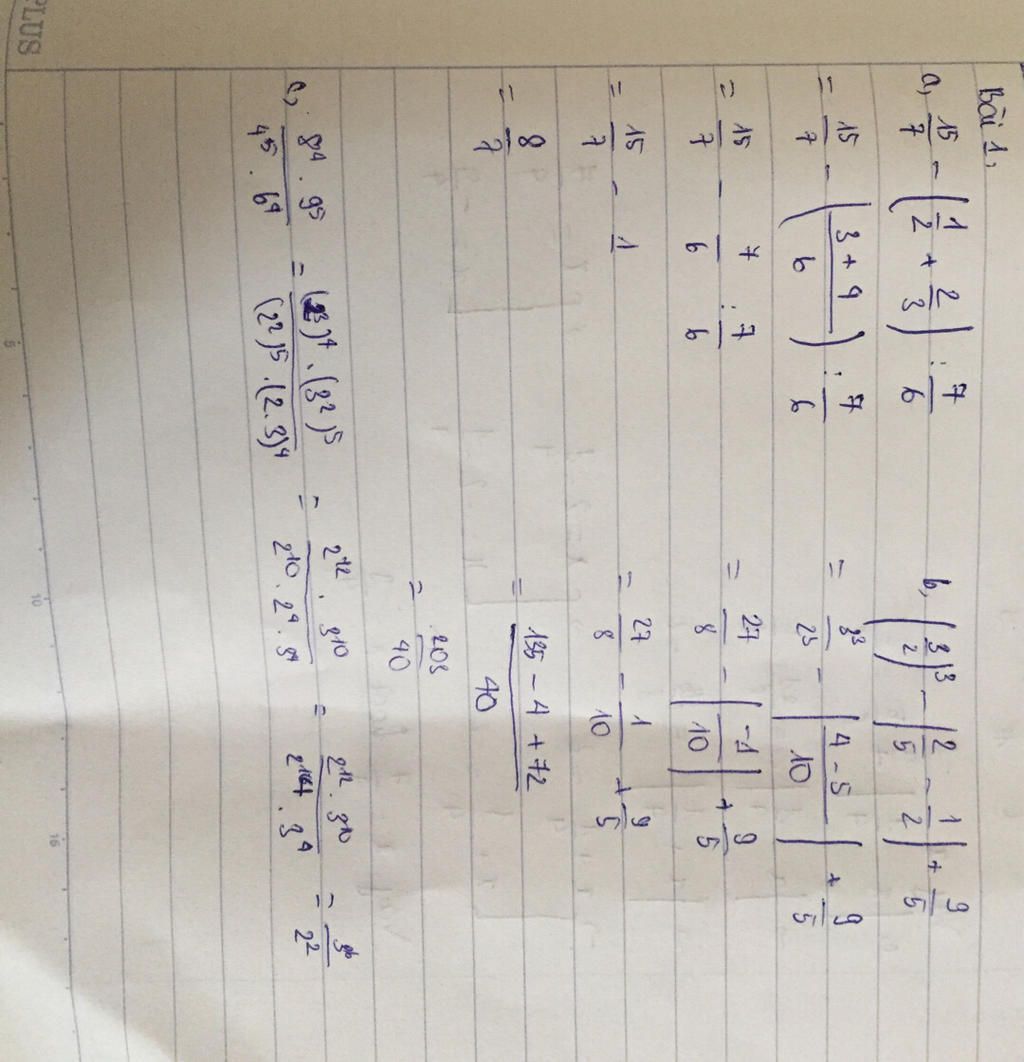 PLUS
Bài 1,
a, 15/7 - (1/2 + 2/3) : 7/6
= 15/7 - (3+4/6) : 7/6
= 15/7 - 7/6 : 7/6
= 15/7 - 1/1
= 8/7
b, (3/2)^3 - |2/5 - 1/2| + 9/5
= 3^3/2^3 - |4-5/10| + 9/5
= 27/8 - |-1/10| + 9/5
= 27/8 - 1/10 + 9/5
= 135 - 4 + 72/40
= 203/40
c, 8^4 . 9^5/4^5 . 6^4 = (2^3)^4 . (3^2)^5/(2^2)^5 . (2.3)^4 = 2^12 . 3^10/2^10 . 2^4 . 3^4 = 2^12 . 3^10/2^14 . 3^4 = 3^6/2^2
5
10
15